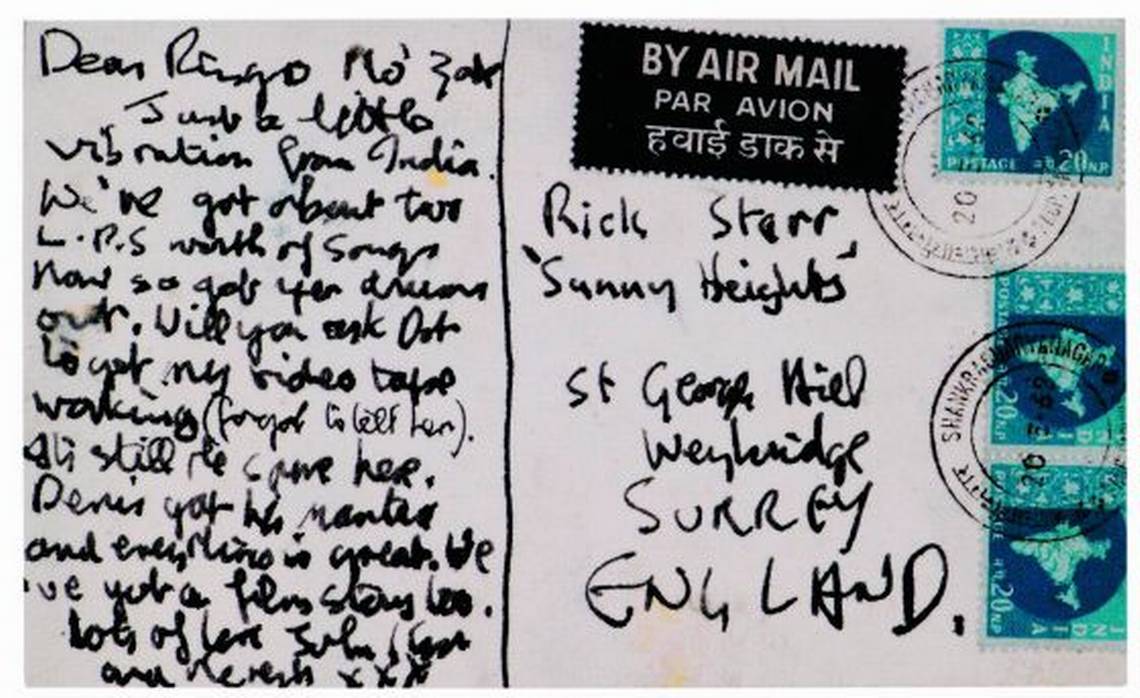 Dear Ringo Mo' Zak
Just a little
vibration from India.
We've got about two
L.P.S worth of songs
now so get yer drums
out. Will you ask Dot
to get my video tape
working (forgot to tell her).
still the same here.
Denis got his mantra
and everything is great. We
've got a film story too.
Lots of love John
and xxx
BY AIR MAIL
PAR AVION
हवाई डाक से
Rick Starr
'Sunny Heights'
St George Hill
Weybridge
SURREY
ENGLAND.
INDIA
POSTAGE 20 NP
20
POSTAGE 20 NP INDIA
SHANKRACHARYANAGAR
20
POSTAGE 20 NP INDIA